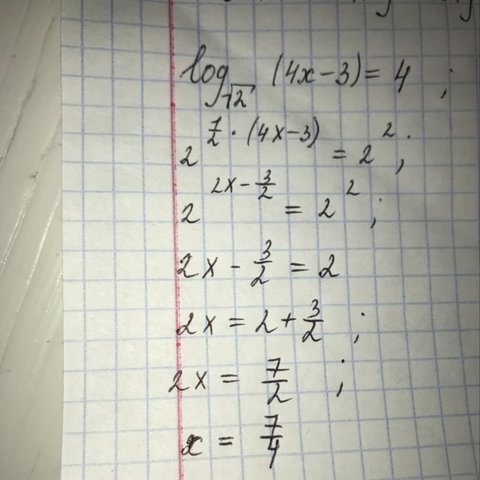 log_√2 (4x-3) = 4 ;
2^(7/2 · (4x-3)) = 2^2 ;
2^(2x - 3/2) = 2^2 ;
2x - 3/2 = 2
2x = 2 + 3/2 ;
2x = 7/2 ;
x = 7/4